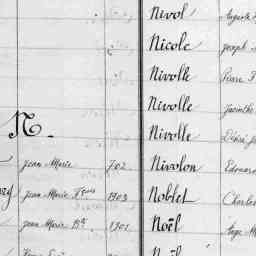 Nivol Auguste
Nicole Joseph
Nivolle Pierre F
Nivolle Jacinthe
N. Nivolle Désiré
Jean Marie 702 Nivolon Edouard
Jean Marie Fçois 1903 Noblet Charles
Jean Marie Bte 1901 Noël Ange M
Noël